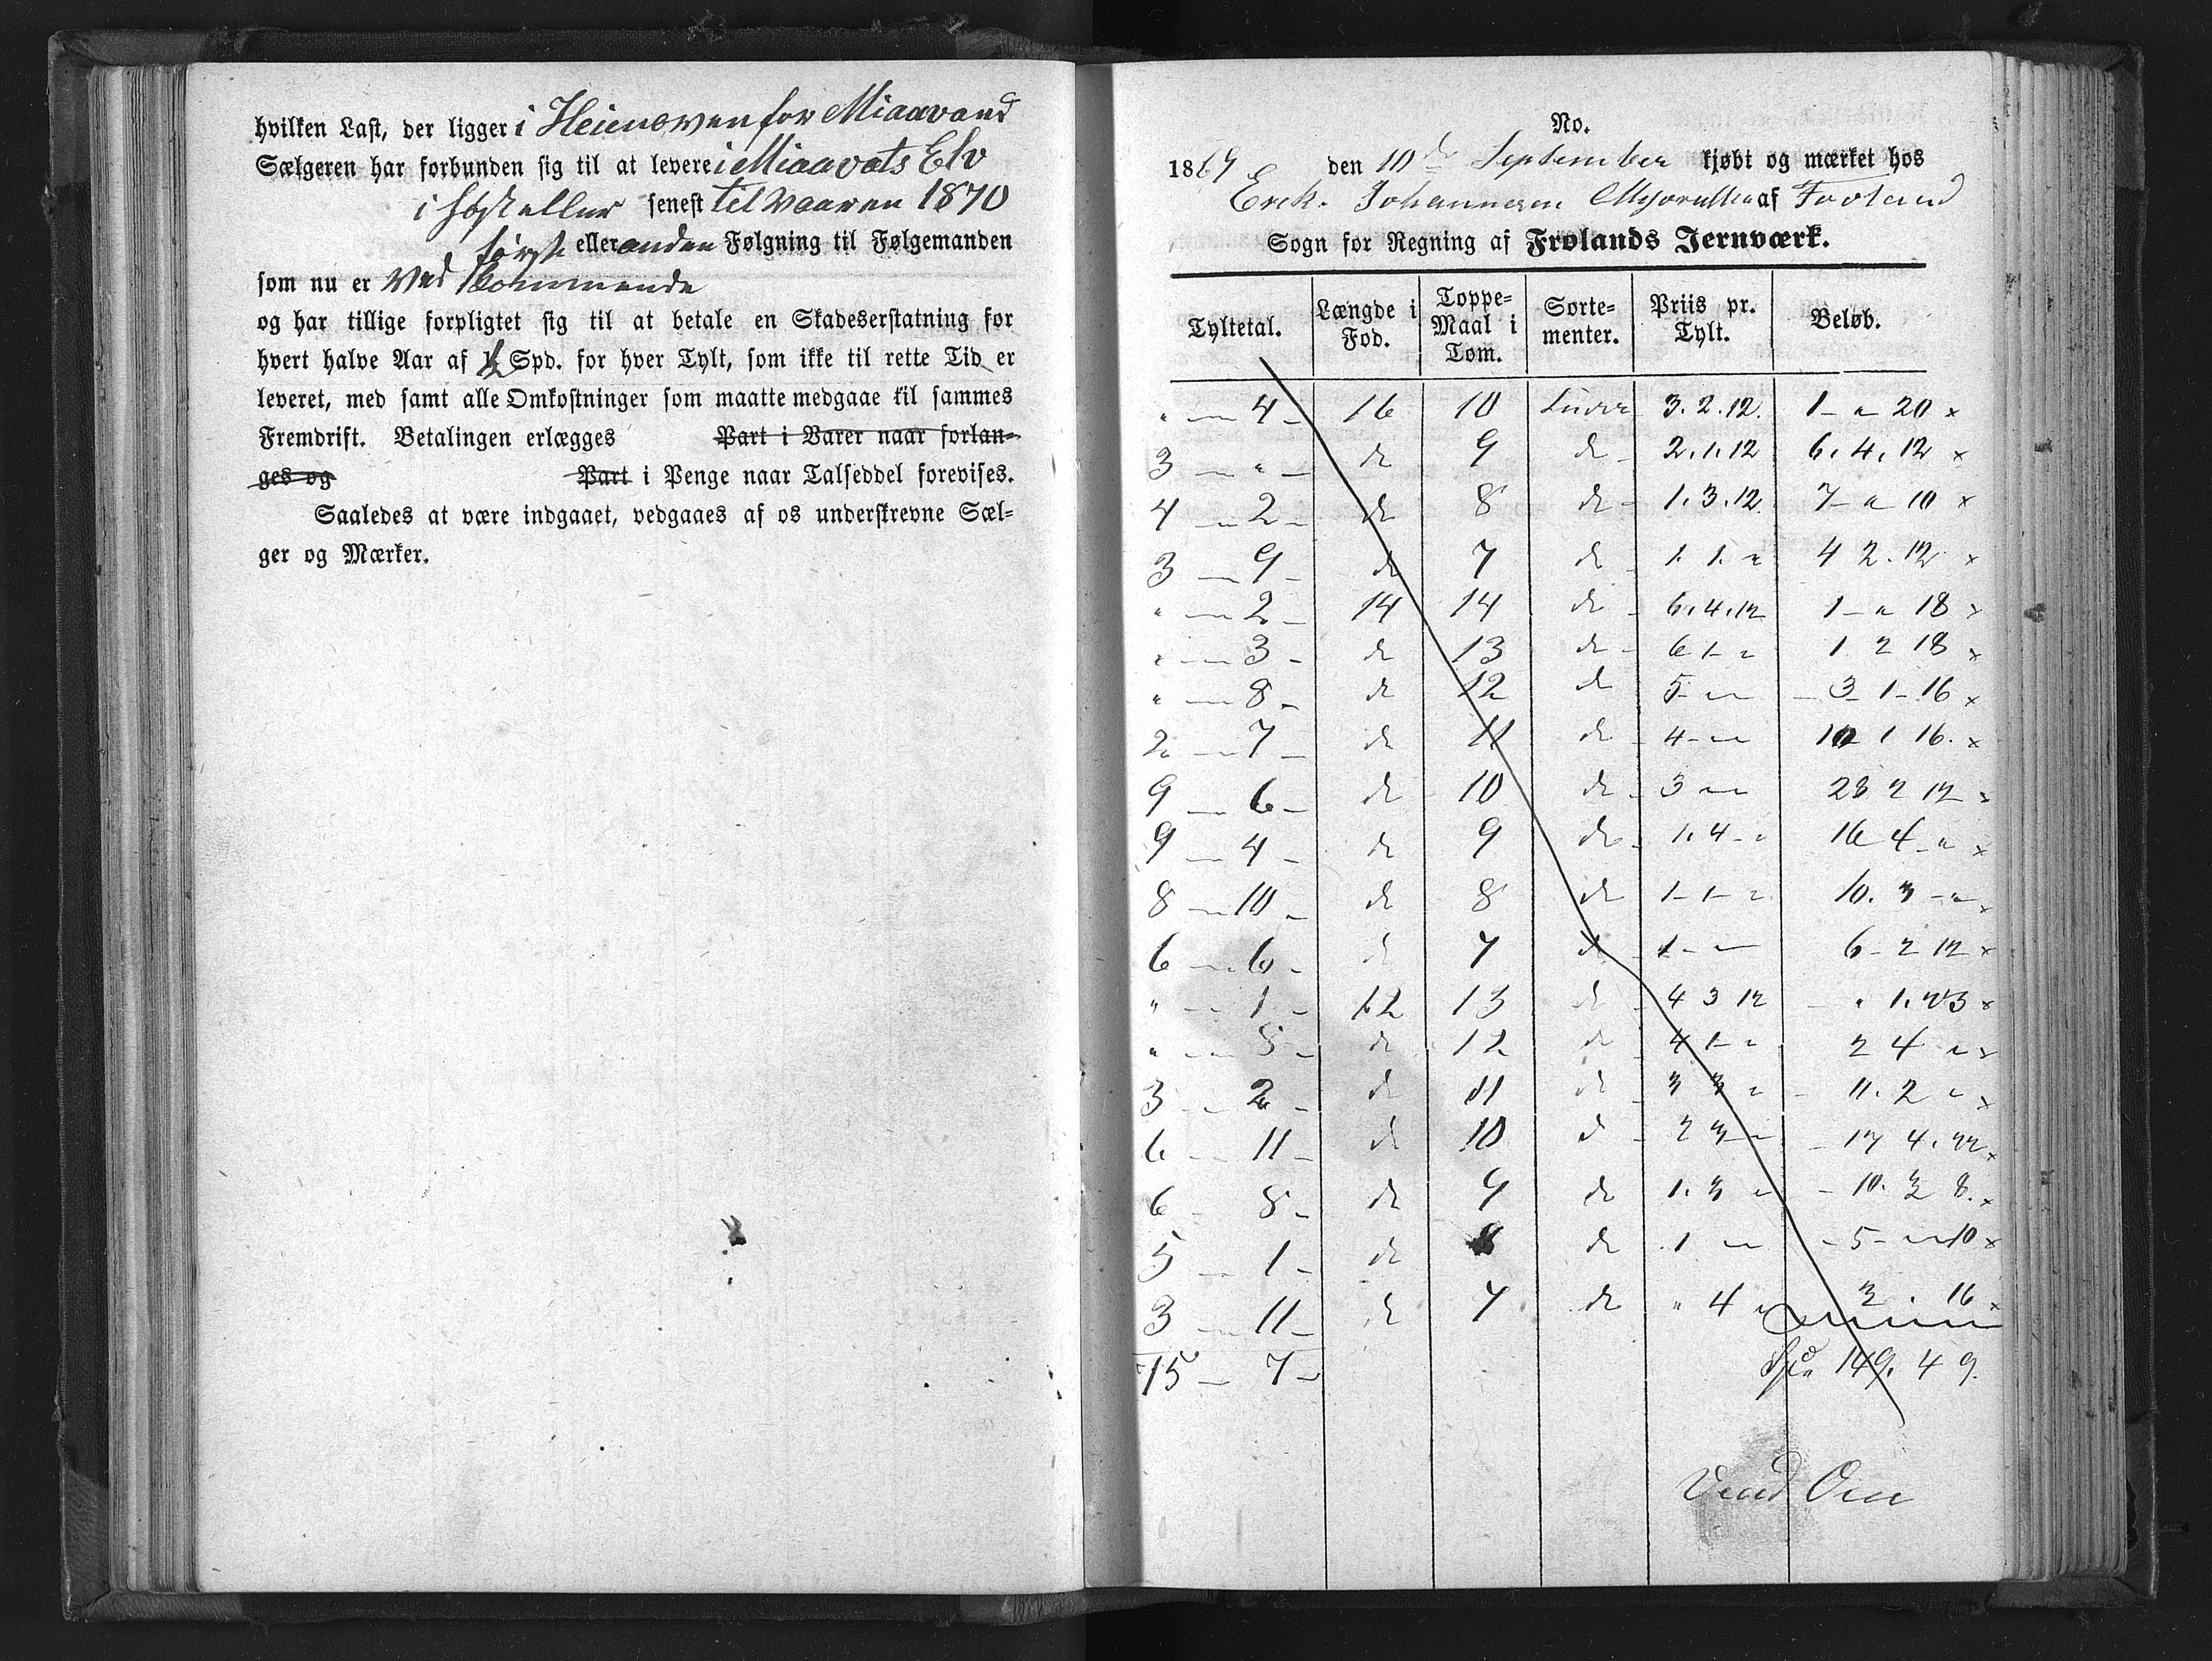 hvilken Last, der ligger i Heiensven for Miaavand
Sælgeren har forbunden sig til at levere i Miaavats Elv
i Høst eller senest til Vaaren 1870
første eller anden Følgning til Følgemanden
som nu er Ved Kommende
og har tillige forpligtet sig til at betale en Skadeserstatning for
hvert halve Aar af ½ Spd. for hver Tylt, som ikke til rette Tid er
leveret, med samt alle Omkostninger som maatte medgaae til sammes
Fremdrift. Betalingen erlægges Part i Varer naar forlan-
ges og Part i Penge naar Talseddel forevises.
Saaledes at være indgaaet, vedgaaes af os underskrevne Sæl-
ger og Mærker.
No.
1869 den 10de September kjøbt og mærket hos
Erek. Johannesen af Froland
Sogn for Regning af Frolands Jernværk.
Tyltetal. Længde i Fod. Toppe-Maal i Tom. Sorte-menter. Priis pr. Tylt. Beløb.
" - 4 - 16 10 Furr 3. 2. 12. 1 - " 20 x
3 - " - do 9 do 2. 1. 12 6. 4. 12 x
4 - 2 - do 8 do 1. 3. 12. 7 - " 10 x
3 - 9 - do 7 do 1. 1. " 4 2. 12 x
" - 2 - 14 14 do 6. 4. 12 1 - " 18 x
" - 3 - do 13 do 6 1 - " 1 2 18 x
" - 8 - do 12 do 5 - " - 3 1 - 16 x
2 - 7 - do 11 do 4 - " 10 1 16. x
9 - 6 - do 10 do 3 - " 28 2 12 x
9 - 4 - do 9 do 1. 4 - " 16 4 - " x
8 - 10 - do 8 do 1 - 1 - " 10. 3 - " x
6 - 6 - do 7 do 1 - " 6 - 2 12 x
" - 1 - 12 13 do 4 3 12 " 1. 23 x
" - 8 - do 12 do 4 1 - " 2 4 " x
3 - 2 - do 11 do 3 3 " 11. 2 " x
6 - 11 - do 10 do 2 3 - " 17 4. 22 x
6 - 8 - do 9 do 1. 3 " 10. 3 8. x
5 - 1 - do 8 do 1 - " 5 - " 10 x
3 - 11 - do 7 do " 4 " 3 . 16 x
75 - 7 - Spd. 149. 4 9.
Vend Om